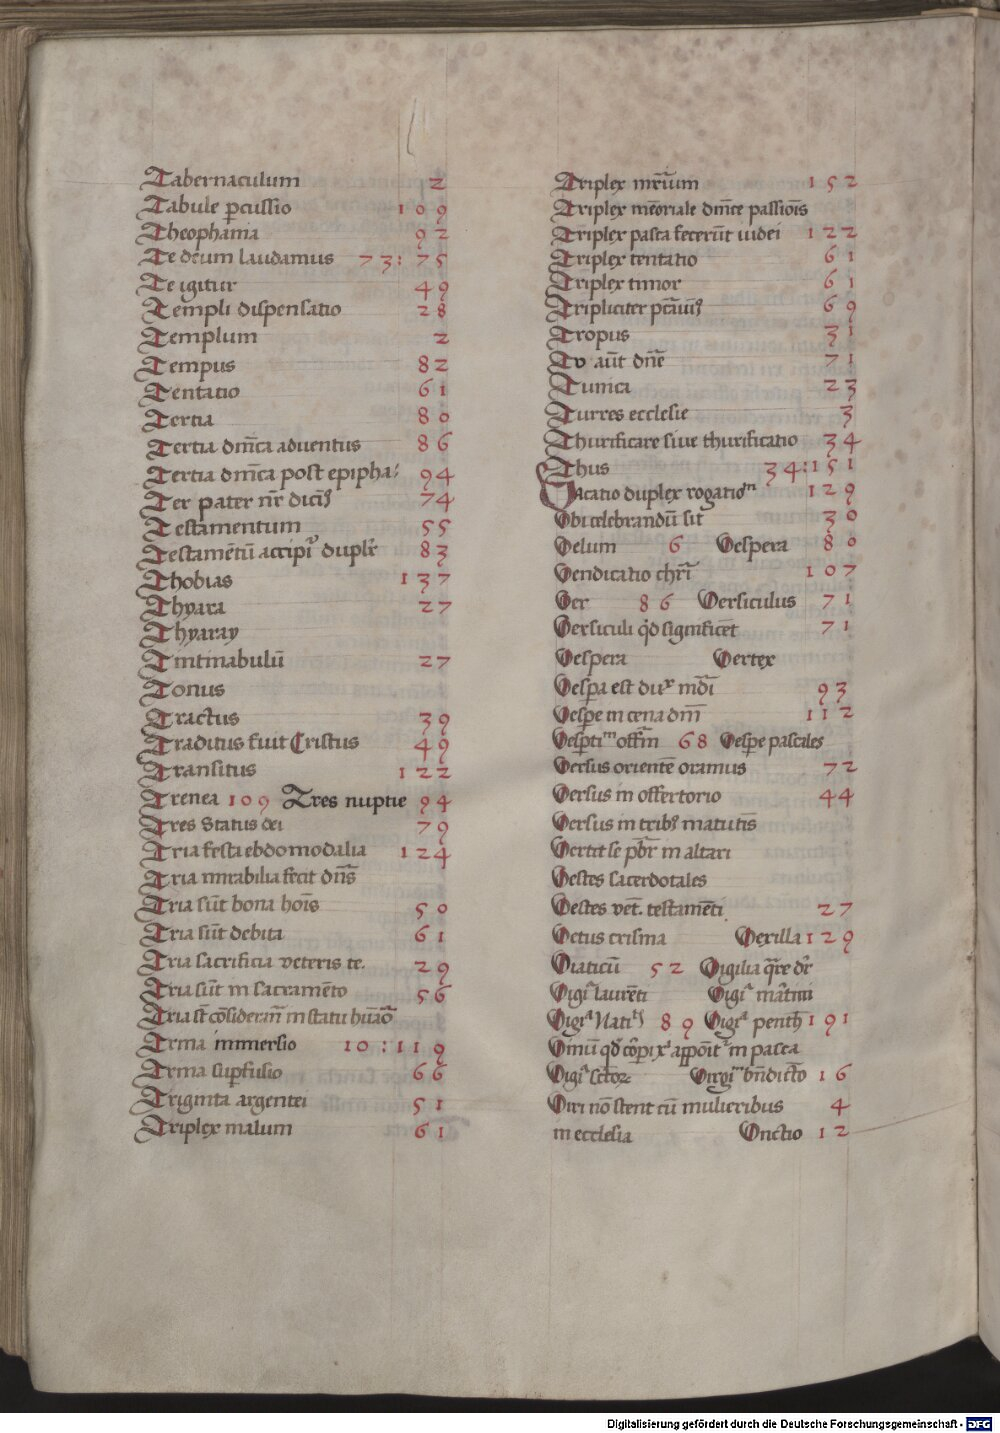 Tabernaculum 2
Tabule ꝑcussio 109
Theophania 92
Te deum laudamus 73: 75
Te igitur 49
Templi dispensatio 28
Templum 2
Tempus 82
Tentatio 61
Tertia 80
Tertia dn̄ica aduentus 86
Tertia dn̄ica post epipha: 94
Ter pater nr̄ dicit᷒ 74
Testamentum 55
Testamētū accipi᷑ dupl'r 83
Thobias 137
Thyara 27
Thyaray
Tintinabulū 27
Tonus
Tractus 39
Traditus fuit Cristus 49
Transitus 122
Trenea 109 Tres nuptie 94
Tres Status dei 79
Tria festa ebdomodalia 124
Tria mirabilia fecit dn̄s
Tria sūt bona hoīs 50
Tria sūt debita 61
Tria sacrificia veteris te. 29
Tria sūt in sacramēto 56
Tria st̄ cōsiderān in statu hūaō
Trina immersio 10:119
Trina suꝑfusio 66
Triginta argentei 51
Triplex malum 61
Triplex mr̄ium 152
Triplex mēoriale dn̄ice passiōis
Triplex pasca fecerūt iudei 122
Triplex tentatio 61
Triplex timor 61
Tripliciter 69
Tropus 31
Tu aūt dn̄e 71
Tunica 23
Turres ecclesie 3
Thurificare siue thurificatio 34
Thus 34:151
Vacatio duplex rogatioᵐ 129
Vbi celebrandū sit 30
Velum 6 Vespera 80
Vendicatio chr̄i 107
Ver 86 Versiculus 71
Versiculi qd̄ significēt 71
Vespera Vertex
Vesꝑa est dux mūdi 93
Vesꝑe in cena dn̄i 112
Vesꝑtiᵐ offm̄ 68 Vesꝑe pascales
Versus orientē oramus 72
Versus in offertorio 44
Versus in trib᷒ matutīs
Vertit se pb̄r in altari
Vestes sacerdotales
Vestes vet̄. testamēti 27
Vetus crisma Vexilla 129
Viaticū 52 Vigilia qr̄e dr̄
Vigiᵃ laurēti Vigiᵃ martini
Vigiᵃ Natiᵗˢ 89 Vigiᵃ penth̄ 191
Vinū in pasca
Vigiᵃ sctoꝝ Virgiᵐ bn̄dictō 16
Viri nō stent cū mulieribus 4
in ecclesia Vnctio 12
Digitalisierung gefördert durch die Deutsche Forschungsgemeinschaft - DFG